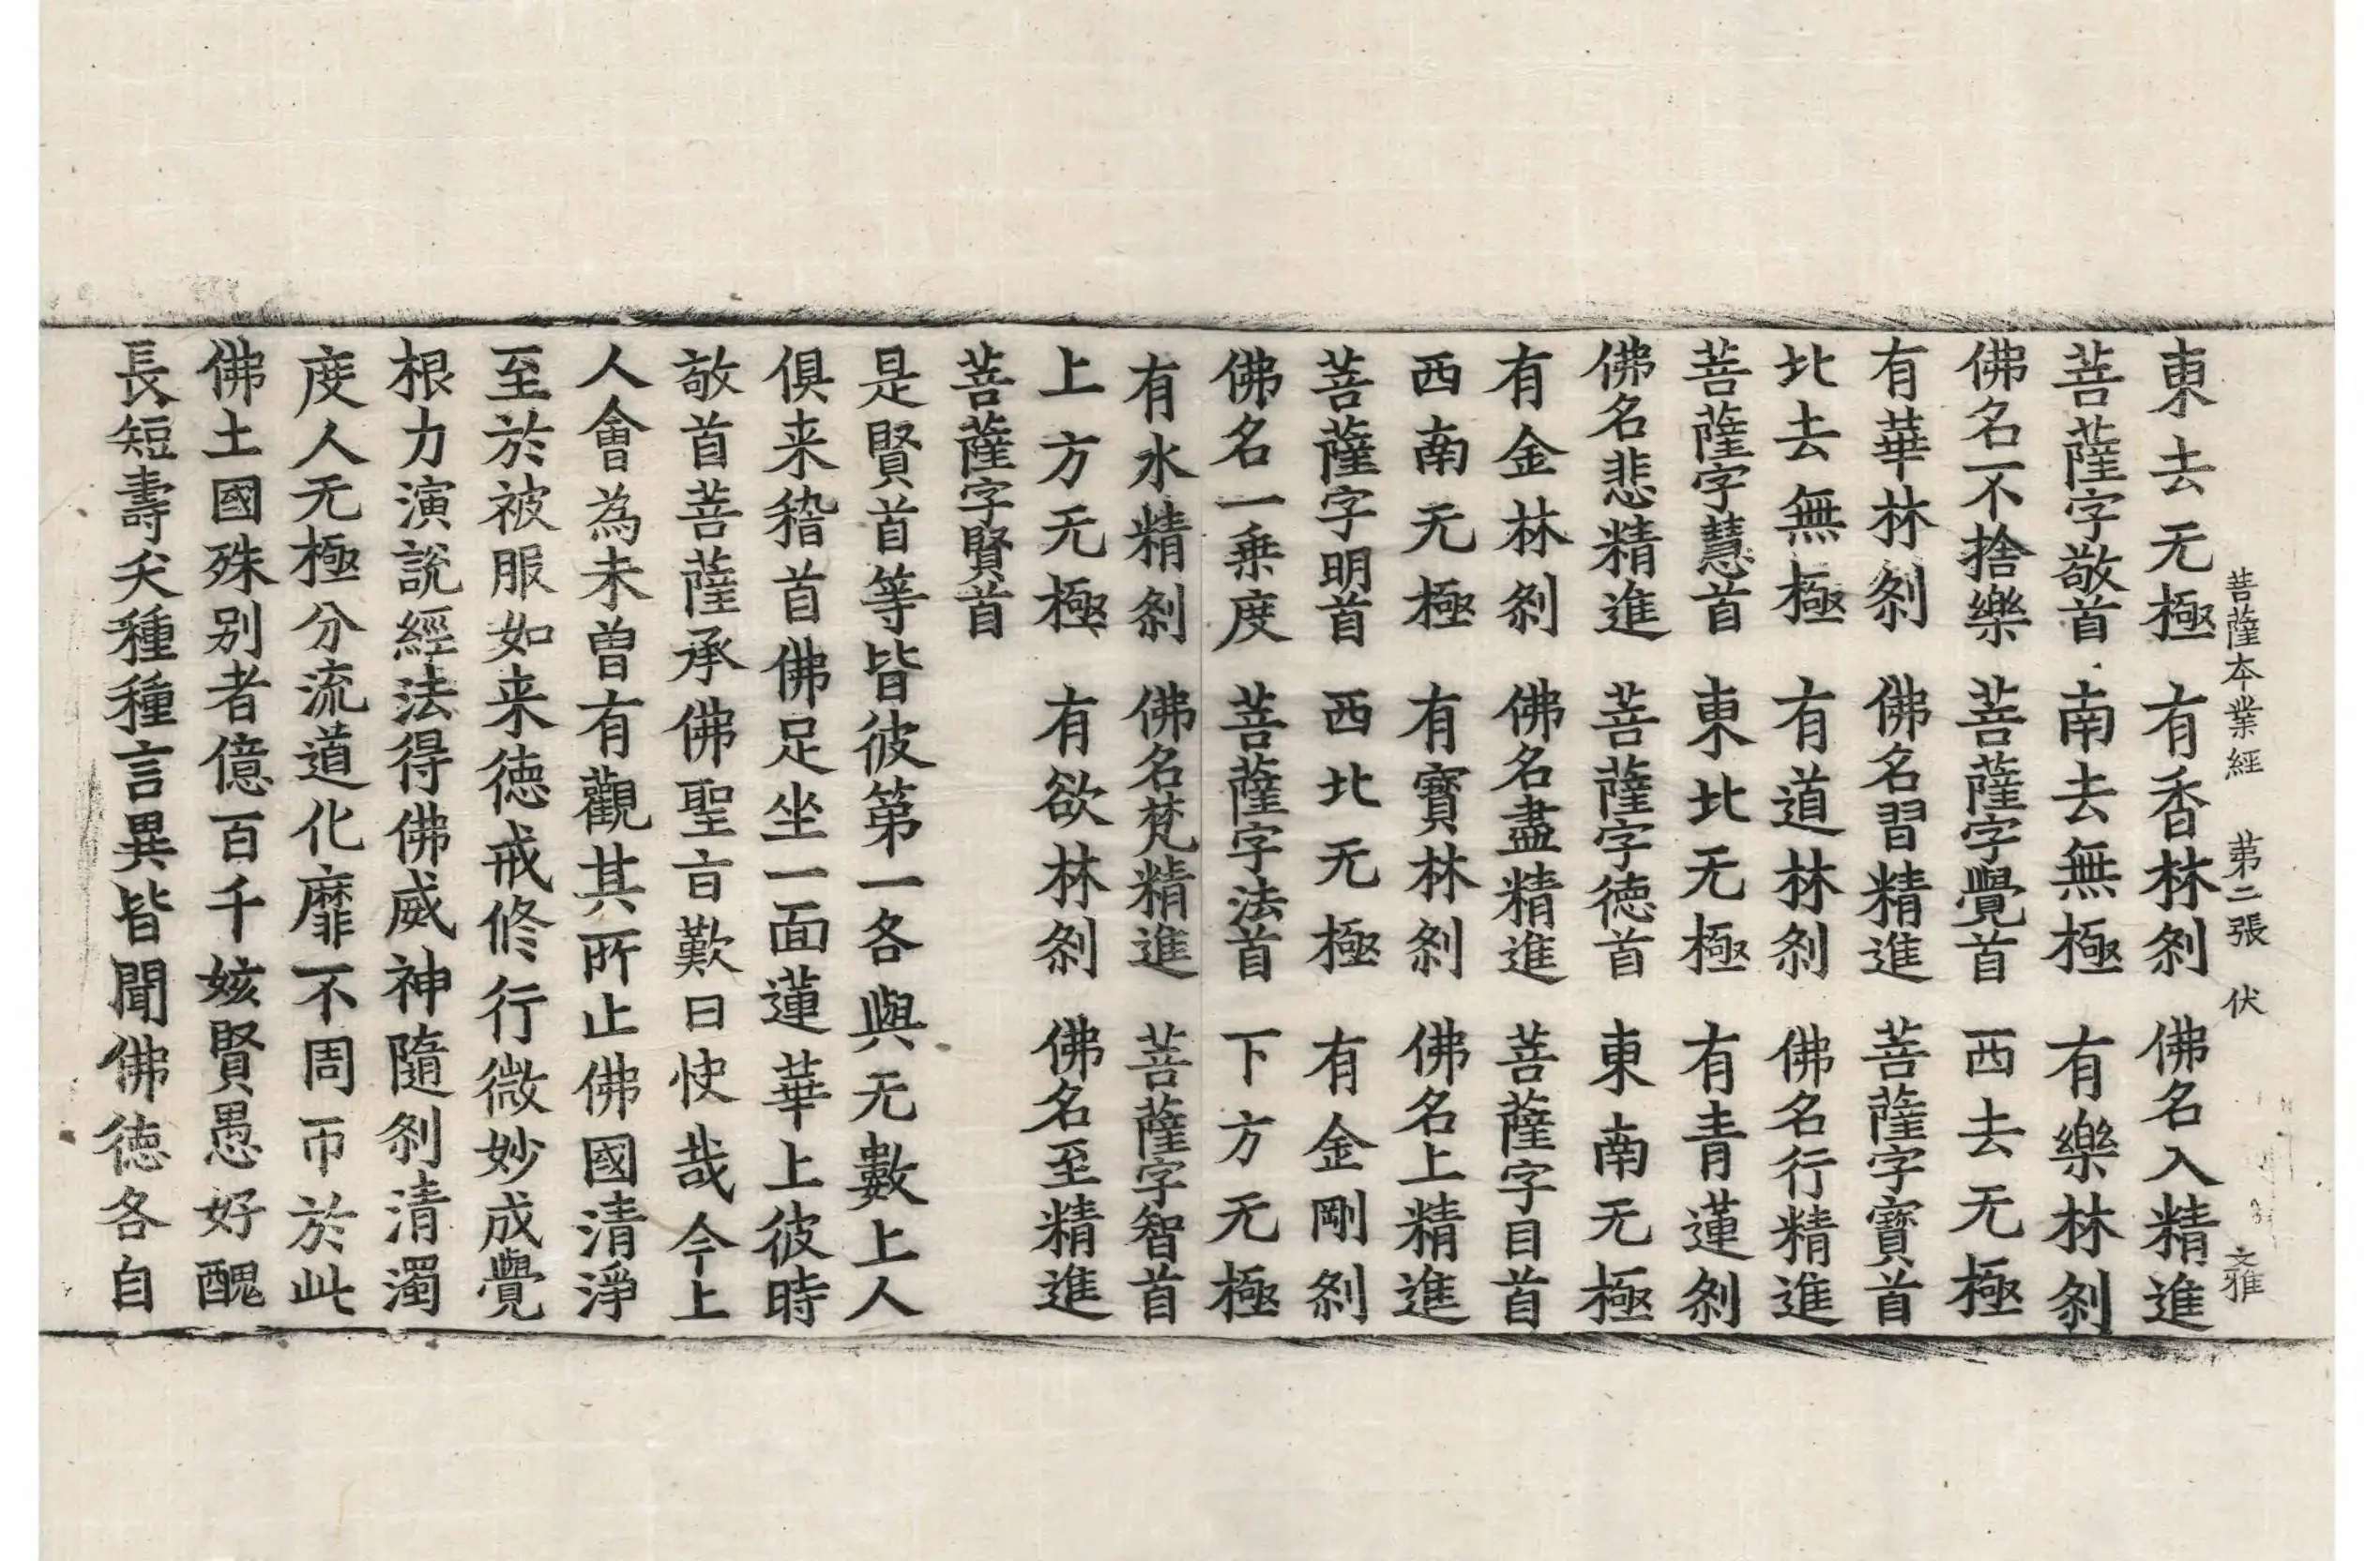 菩薩本業經 苐二張 伏 文雅
東去无極 有香林刹 佛名入精進
菩薩字敬首 南去無極 有樂林刹
佛名不捨樂 菩薩字覺首 西去无極
有華林刹 佛名習精進 菩薩字寶首
北去無極 有道林刹 佛名行精進
菩薩字慧首 東北无極 有青蓮刹
佛名悲精進 菩薩字德首 東南无極
有金林刹 佛名盡精進 菩薩字目首
西南无極 有寶林刹 佛名上精進
菩薩字明首 西北无極 有金剛刹
佛名一乗度 菩薩字法首 下方无極
有水精刹 佛名梵精進 菩薩字智首
上方无極 有欲林刹 佛名至精進
菩薩字賢首
是賢首等皆彼第一各與无數上人
俱来稽首佛足坐一面蓮華上彼時
敬首菩薩承佛聖㫖歎曰快哉今上
人會為未曽有觀其所止佛國清淨
至於被服如来德戒修行微妙成覺
根力演說經法得佛威神隨刹清濁
度人无極分流道化靡不周帀於此
佛土國殊别者億百千姟賢愚好醜
長短壽夭種種言異皆聞佛德各自